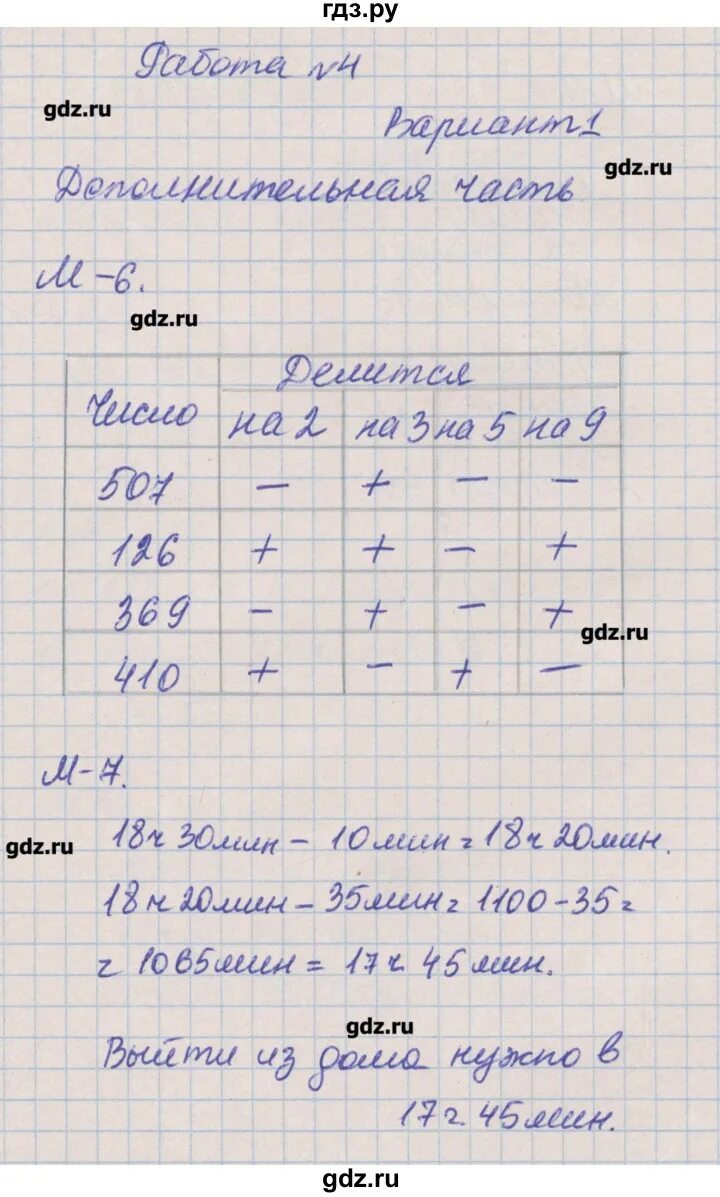 гдз.ру
Работа №4
gdz.ru
Вариант 1
gdz.ru
Дополнительная часть
М-6.
gdz.ru
Делится
Число на 2 на 3 на 5 на 9
507 - + - -
126 + + - +
369 - + - +
gdz.ru
410 + - + -
М-7.
18ч 30мин - 10мин = 18ч 20мин.
gdz.ru
18ч 20мин - 35мин = 1100-35 =
= 1065мин = 17ч 45мин.
gdz.ru
Выйти из дома нужно в
17ч 45мин.
gdz.ru